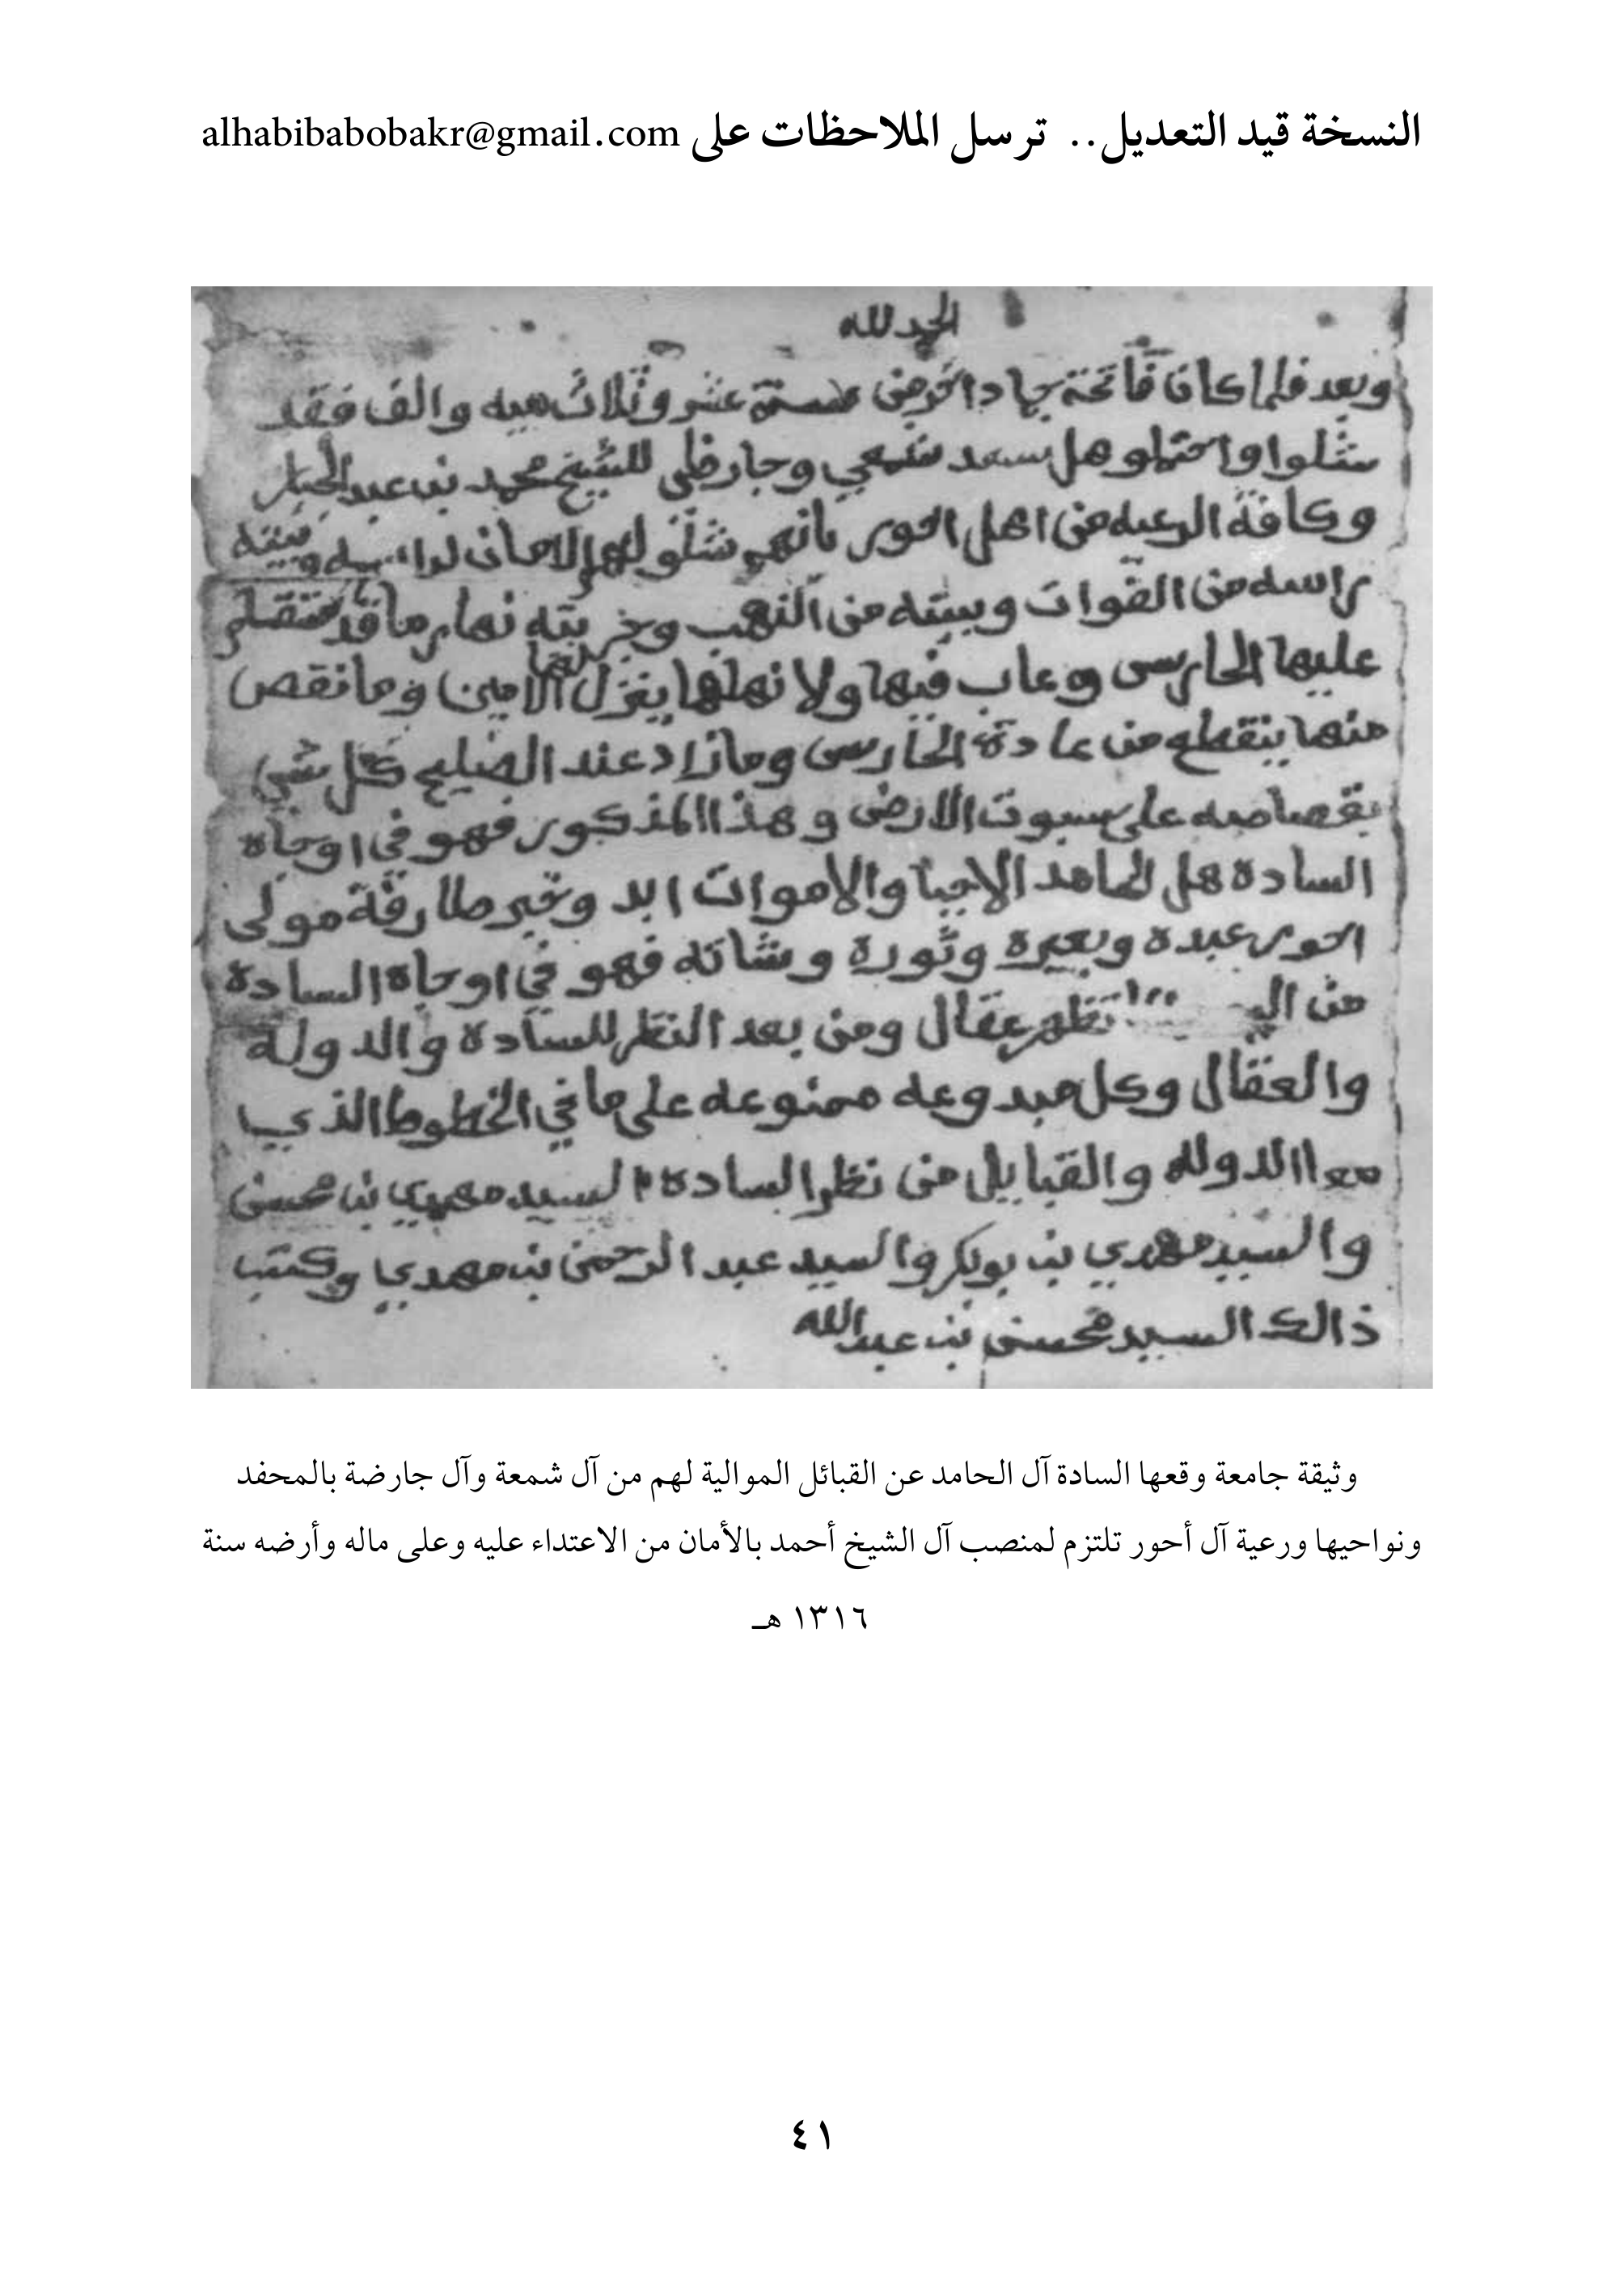 النسخة قيد التعديل.. ترسل الملاحظات على alhabibabobakr@gmail.com
الحمد لله
وبعد فلما كان فاتحة جماد اخر من سنة ستة عشر وثلاث ميه والف فقد
شلوا واحتملو هل سعد شمعي وجارضي للشيخ محمد بن عبد الجبار
وكافة الرعيه من اهل احور بانهم شلو لهم الامان
راسه من الفوات وبيته من النهب وخربته نهار ما قد
عليها الحارس وعاب فيها ولا نهابها ينزل الامين وما نقص
منها ينقطع من عادة الحارس وما زاد عند الصليح كل شي
على سبوت الارض وهذا المذكور فهو في اوجاه
السادة هل الحامد الاحيا والاموات ابد وخبر طارفة مولى
احور عبده وبعيره وثوره وشاته فهو في اوجاه السادة
من نظر عقال ومن بعد النظر للسادة والدولة
والعقال وكل مبدوعه ممنوعه على ما في الخطوط الذي
معا الدوله والقبايل من نظر السادة السيد مهدي بن محسن
والسيد مهدي بن بوبكر والسيد عبد الرحمن بن مهدي وكتب
ذالك السيد محسن بن عبد الله
وثيقة جامعة وقعها السادة آل الحامد عن القبائل الموالية لهم من آل شمعة وآل جارضة بالمحفد
ونواحيها ورعية آل أحور تلتزم لمنصب آل الشيخ أحمد بالأمان من الاعتداء عليه وعلى ماله وأرضه سنة
١٣١٦ هـ
٤١